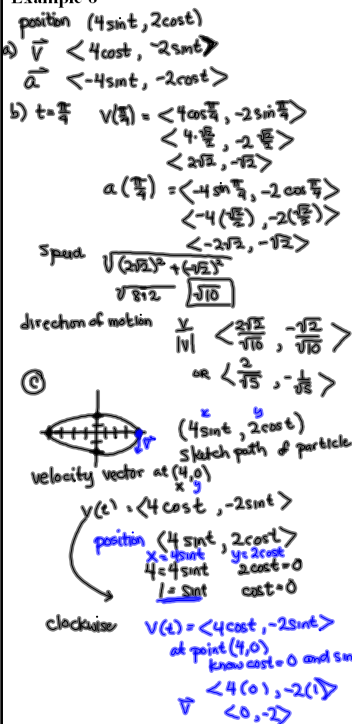 Example 6
position (4sint, 2cost)
a) v <4cost, -2sint>
a <-4sint, -2cost>
b) t=π/4 v(π/4) = <4cosπ/4, -2sinπ/4>
<4·√2/2, -2 √2/2>
<2√2, -√2>
a(π/4) = <-4sinπ/4, -2cosπ/4>
<-4(√2/2), -2(√2/2)>
<-2√2, -√2>
Speed √(2√2)²+(-√2)²
√8+2 √10
direction of motion v/|v| <2√2/√10, -√2/√10>
OR <2/√5, -1/√5>
c
x y
(4sint, 2cost)
v
sketch path of particle
velocity vector at (4,0)
x y
v(t) = <4cost, -2sint>
position (4sint, 2cost>
x=4sint y=2cost
4=4sint 2cost=0
1=sint cost=0
clockwise v(t) = <4cost, -2sint>
at point (4,0)
know cost=0 and sin
<4(0), -2(1)>
v <0,-2>